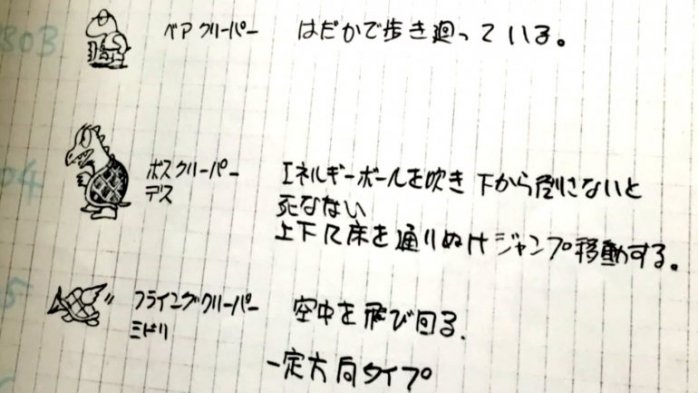 803
ベアクリーパー
はだかで歩き廻っている。
04
ボスクリーパー
デス
エネルギーボールを吹き 下から倒さないと
死なない
上下に床を通りぬけジャンプ移動する。
5
フライングクリーパー
ミドリ
空中を飛び回る。
一定方向タイプ